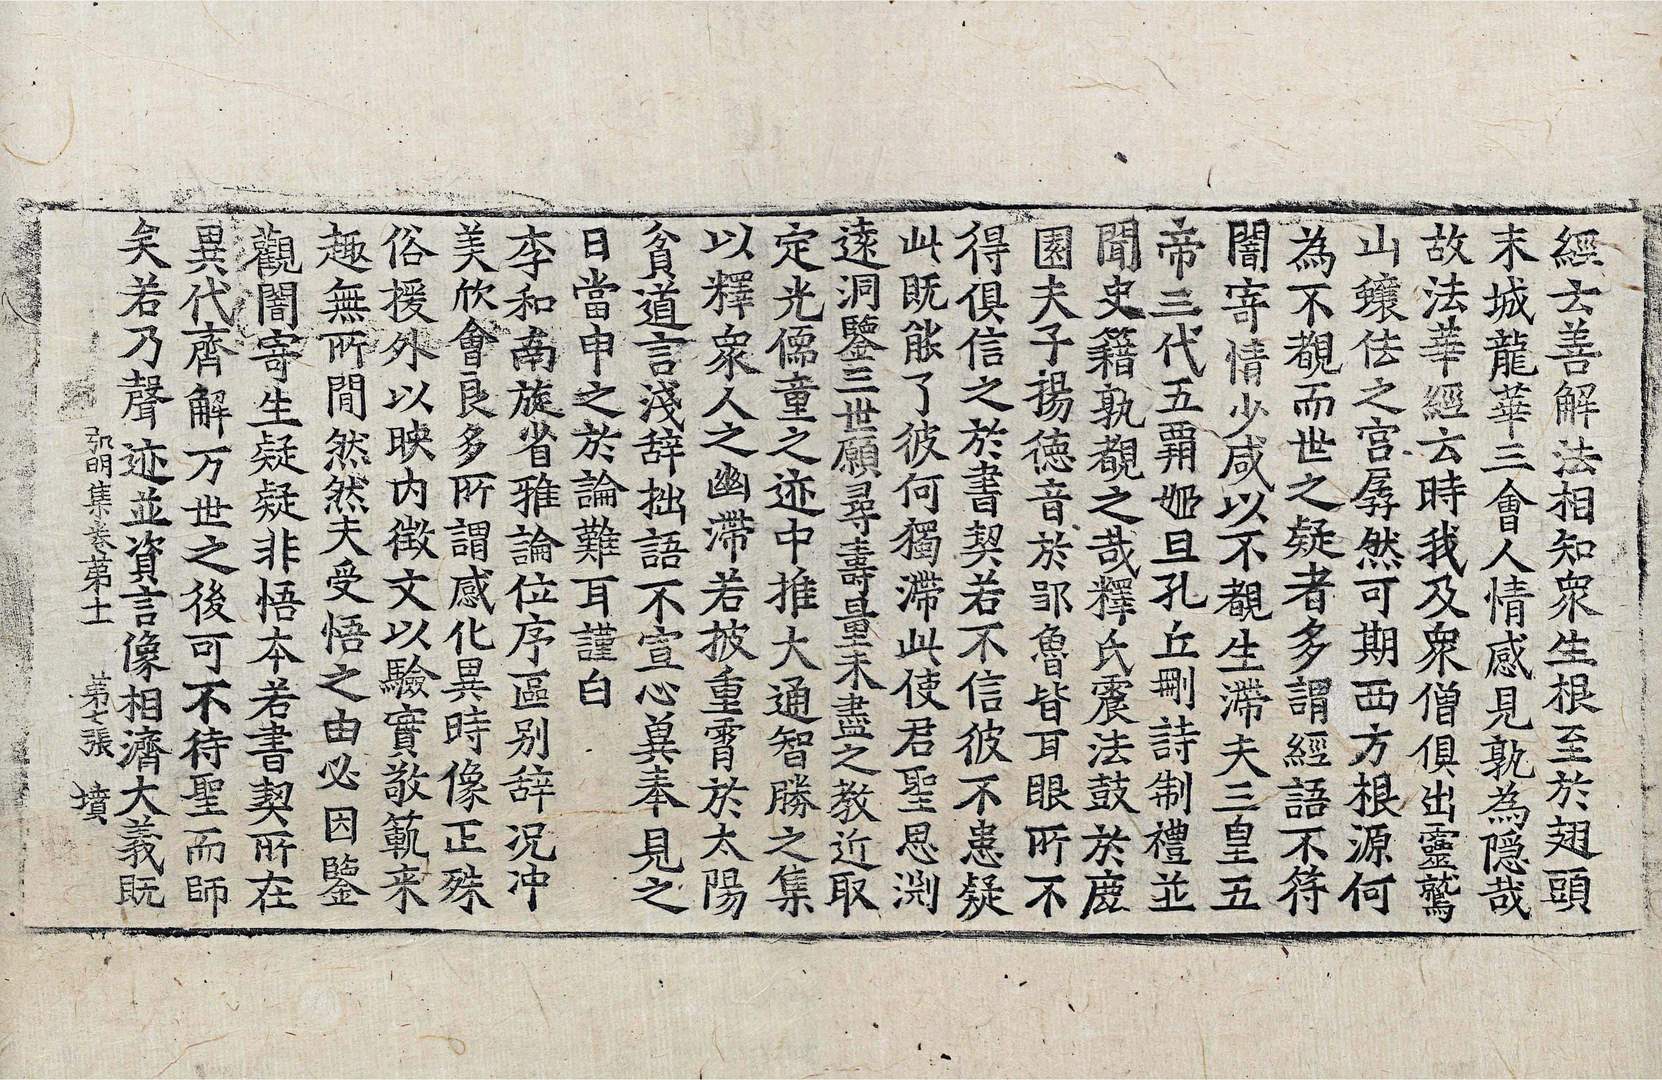 經云善解法相知衆生根至於翅頭
末城龍華三會人情感見孰為隱哉
故法華經云時我及衆僧俱出靈鷲
山蠰佉之宮孱然可期西方根源何
為不覩而世之疑者多謂經語不符
闇寄情少咸以不覩生滯夫三皇五
帝三代五霸姬旦孔丘刪詩制禮並
聞史籍孰覩之哉釋氏震法鼓於鹿
園夫子揚德音於邹魯皆耳眼所不
得俱信之於書契若不信彼不患疑
此既能了彼何獨滯此使君聖思渕
遠洞鑒三世願尋壽量未盡之教近取
定光儒童之迹中推大通智勝之集
以釋衆人之幽滯若披重霄於太陽
貧道言淺辞拙語不宣心冀奉見之
日當申之於論難耳謹白
李和南旋省雅論位序區别辞况冲
美欣會良多所謂感化異時像正殊
俗援外以映内徵文以驗實敬範来
趣無所間然然夫受悟之由必因鑒
觀闇寄生疑疑非悟本若書契所在
異代齊解万世之後可不待聖而師
矣若乃聲迹並資言像相濟大義既
弘明集卷第十一 第七張 墳